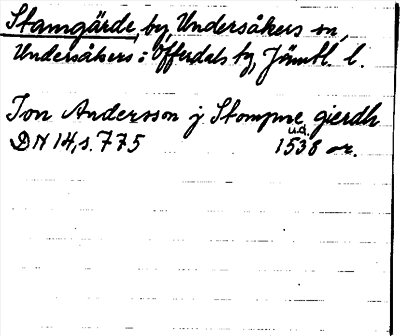 Stamgärde, by, Undersåkers sn,
Undersåkers o. Offerdals tg, Jämtl. l.
Jon Andersson j Stompne gierdh
u.d.
DN 14, s. 775 1538 or.